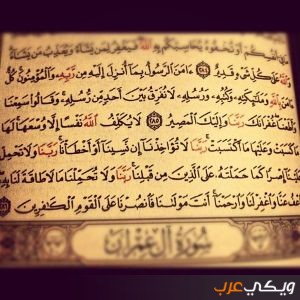 فِىٓ أَنفُسِكُمْ أَوْ تُخْفُوهُ يُحَاسِبْكُم بِهِ ٱللَّهُ فَيَغْفِرُ لِمَن يَشَآءُ وَيُعَذِّبُ مَن يَشَآءُ
وَٱللَّهُ عَلَىٰ كُلِّ شَىْءٍ قَدِيرٌ ٢٨٤ ءَامَنَ ٱلرَّسُولُ بِمَآ أُنزِلَ إِلَيْهِ مِن رَّبِّهِۦ وَٱلْمُؤْمِنُونَ كُلٌّ
ءَامَنَ بِٱللَّهِ وَمَلَٰٓئِكَتِهِۦ وَكُتُبِهِۦ وَرُسُلِهِۦ لَا نُفَرِّقُ بَيْنَ أَحَدٍ مِّن رُّسُلِهِۦ وَقَالُوا۟ سَمِعْنَا
وَأَطَعْنَا غُفْرَانَكَ رَبَّنَا وَإِلَيْكَ ٱلْمَصِيرُ ٢٨٥ لَا يُكَلِّفُ ٱللَّهُ نَفْسًا إِلَّا وُسْعَهَا لَهَا
مَا كَسَبَتْ وَعَلَيْهَا مَا ٱكْتَسَبَتْ رَبَّنَا لَا تُؤَاخِذْنَآ إِن نَّسِينَآ أَوْ أَخْطَأْنَا رَبَّنَا وَلَا تَحْمِلْ
عَلَيْنَآ إِصْرًا كَمَا حَمَلْتَهُۥ عَلَى ٱلَّذِينَ مِن قَبْلِنَا رَبَّنَا وَلَا تُحَمِّلْنَا مَا لَا طَاقَةَ لَنَا بِهِۦ
وَٱعْفُ عَنَّا وَٱغْفِرْ لَنَا وَٱرْحَمْنَآ أَنتَ مَوْلَىٰنَا فَٱنصُرْنَا عَلَى ٱلْقَوْمِ ٱلْكَٰفِرِينَ
سُورَةُ آلِ عِمْرَان
ويكي عرب